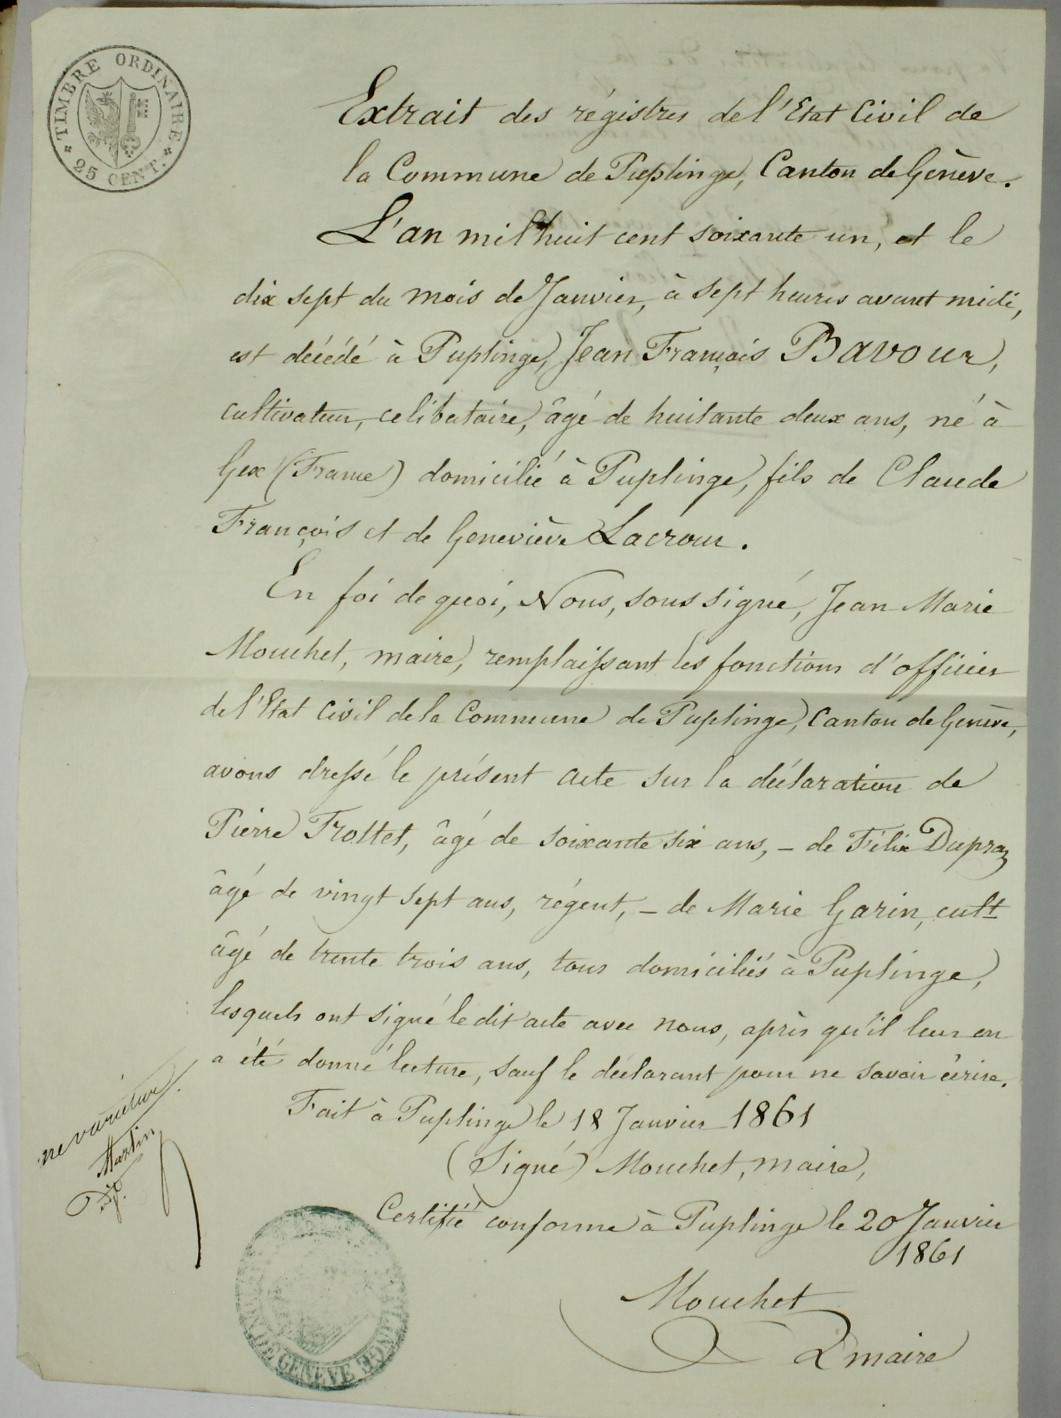 TIMBRE ORDINAIRE
* 25 CENT. *
Extrait des régistres de l'Etat Civil de
la Commune de Puplinge, Canton de Genève.
L'an mil huit cent soixante un, et le
dix sept du mois de Janvier, à sept heures avant midi,
est décédé à Puplinge, Jean François Bavoux,
cultivateur, celibataire, âgé de huitante deux ans, né à
Gex (France) domicilié à Puplinge, fils de Claude
François et de Geneviève Lacroux.
En foi de quoi, Nous, sous signé, Jean Marie
Mouchet, maire, remplaissant les fonctions d'officier
de l'Etat Civil de la Commune de Puplinge, Canton de Genève,
avons dressé le présent acte sur la déclaration de
Pierre Trottet, âgé de soixante six ans, – de Félix Dupraz
âgé de vingt sept ans, régent, – de Marie Garin, cult
âgé de trente trois ans, tous domiciliés à Puplinge,
lesquels ont signé le dit acte avec nous, après qu'il leur en
a été donné lecture, sauf le déclarant pour ne savoir écrire.
Fait à Puplinge le 18 Janvier 1861
(Signé) Mouchet, maire,
ne varietur
Martin
Certifié conforme à Puplinge le 20 Janvier
1861
Mouchet
maire
CANTON DE GENEVE